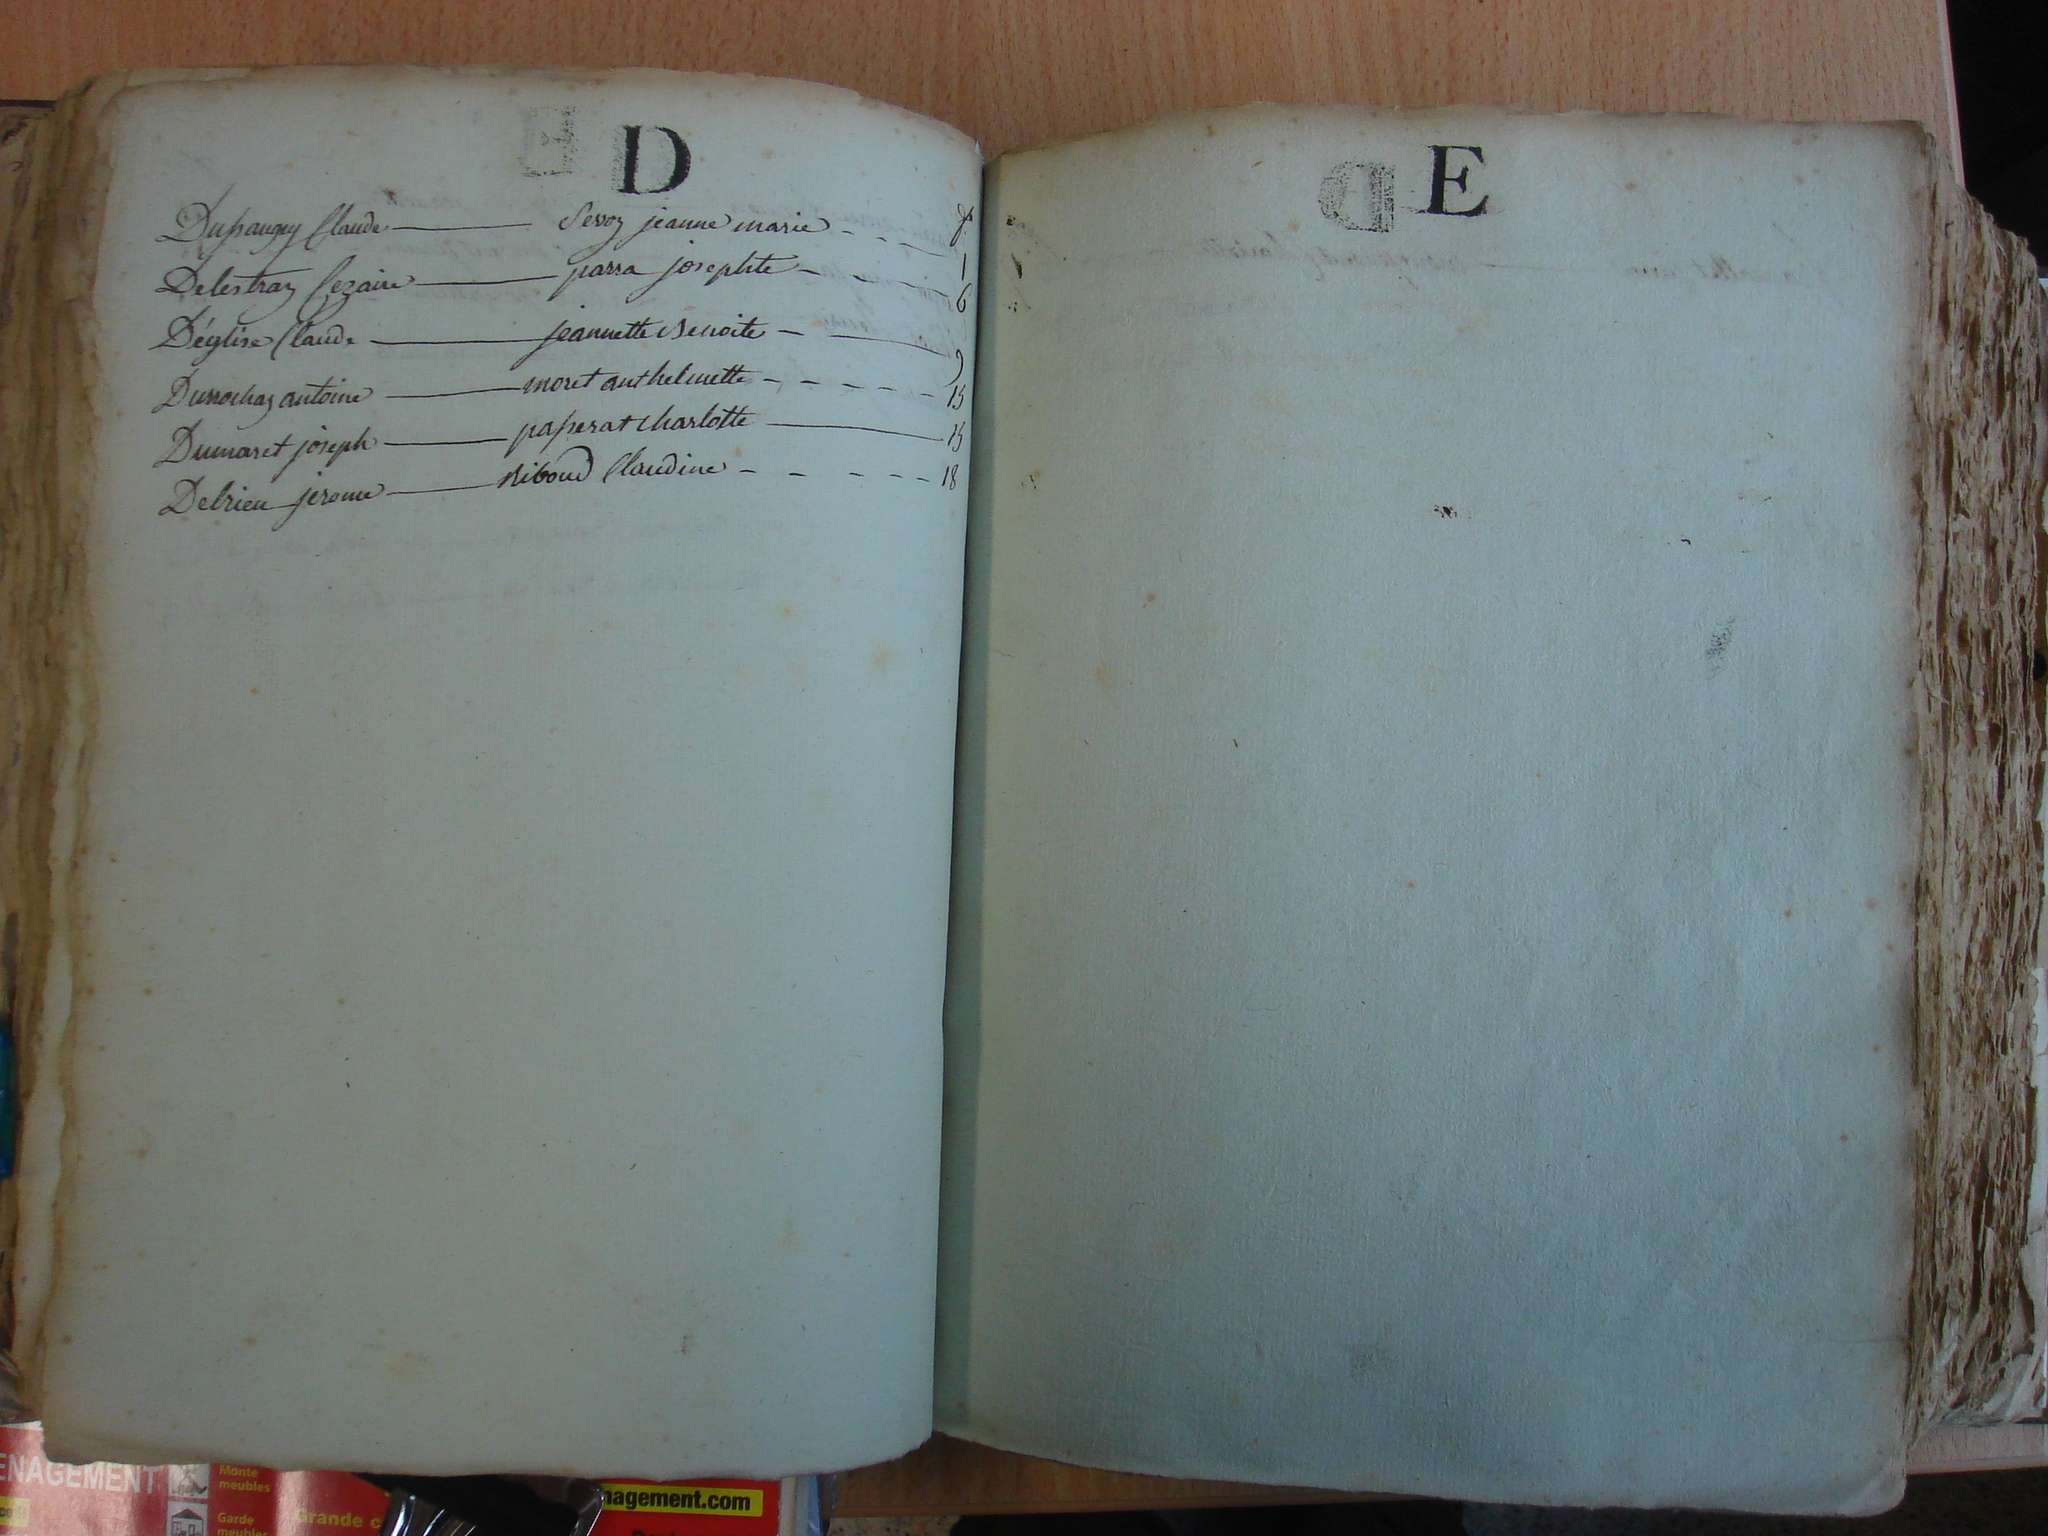 D
Dupaugey Claude Servoz jeanne marie fo
Delestraz Cezaire parra josephte 1
D'église Claude jeannette Benoite 6
Durrochaz antoine moret anthelmette 9
Dumaret joseph paperat Charlotte 15
Delrieu jerome Riboud Claudine 15
18
E
ENAGEMENT
Monte
meubles
Garde
meubles
Grande
nagement.com